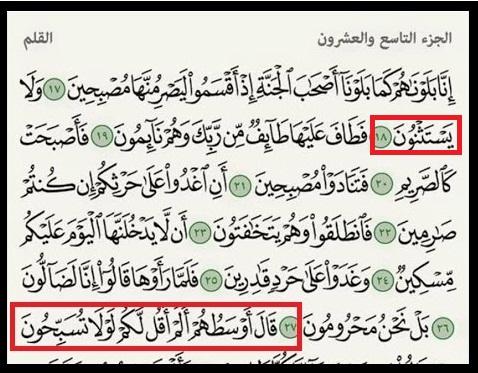 الجزء التاسع والعشرون القلم
إِنَّا بَلَوْنَٰهُمْ كَمَا بَلَوْنَآ أَصْحَٰبَ ٱلْجَنَّةِ إِذْ أَقْسَمُوا۟ لَيَصْرِمُنَّهَا مُصْبِحِينَ ١٧ وَلَا
يَسْتَثْنُونَ ١٨ فَطَافَ عَلَيْهَا طَآئِفٌ مِّن رَّبِّكَ وَهُمْ نَآئِمُونَ ١٩ فَأَصْبَحَتْ
كَٱلصَّرِيمِ ٢٠ فَتَنَادَوْا۟ مُصْبِحِينَ ٢١ أَنِ ٱغْدُوا۟ عَلَىٰ حَرْثِكُمْ إِن كُنتُمْ
صَٰرِمِينَ ٢٢ فَٱنطَلَقُوا۟ وَهُمْ يَتَخَٰفَتُونَ ٢٣ أَن لَّا يَدْخُلَنَّهَا ٱلْيَوْمَ عَلَيْكُم
مِّسْكِينٌ ٢٤ وَغَدَوْا۟ عَلَىٰ حَرْدٍ قَٰدِرِينَ ٢٥ فَلَمَّا رَأَوْهَا قَالُوٓا۟ إِنَّا لَضَآلُّونَ
٢٦ بَلْ نَحْنُ مَحْرُومُونَ ٢٧ قَالَ أَوْسَطُهُمْ أَلَمْ أَقُل لَّكُمْ لَوْلَا تُسَبِّحُونَ